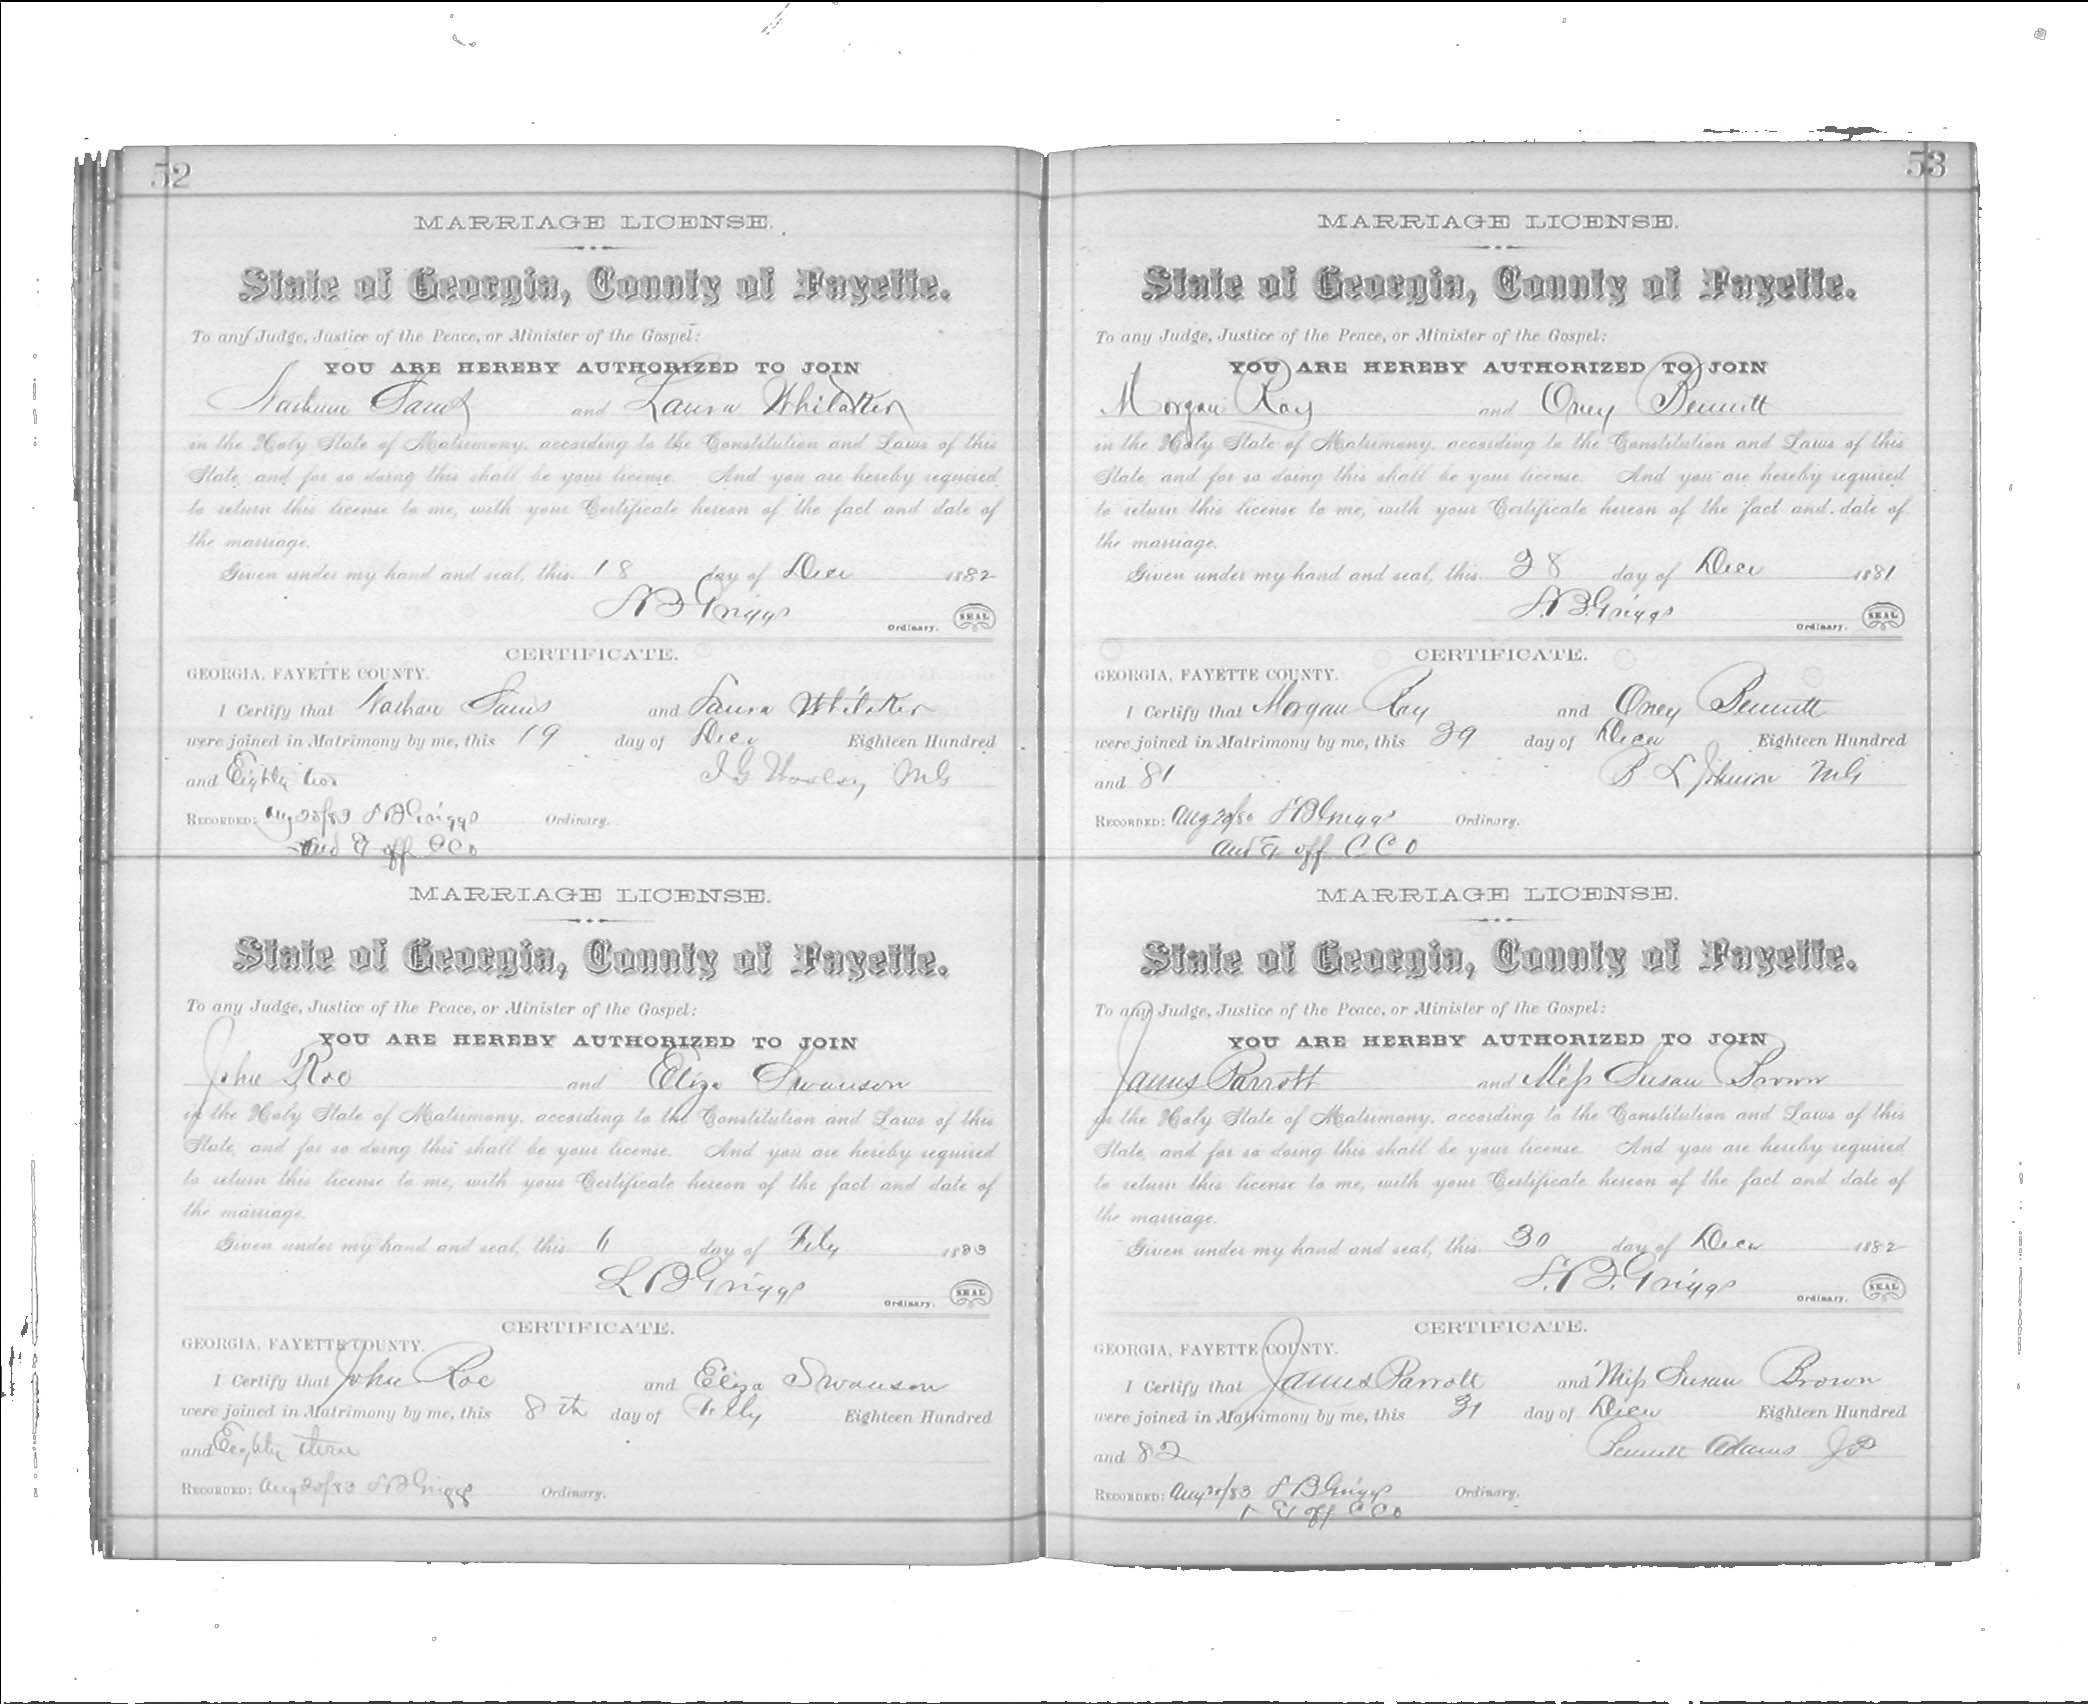 52
MARRIAGE LICENSE.
State of Georgia, County of Fayette.
To any Judge, Justice of the Peace, or Minister of the Gospel:
YOU ARE HEREBY AUTHORIZED TO JOIN
Nathan Sams and Laura Whitaker
in the Holy State of Matrimony, according to the Constitution and Laws of this
State, and for so doing this shall be your license. And you are hereby required
to return this license to me, with your Certificate hereon of the fact and date of
the marriage.
Given under my hand and seal, this 18 day of Decr 1882
S B Griggs
Ordinary. SEAL
CERTIFICATE.
GEORGIA, FAYETTE COUNTY.
I Certify that Nathan Sams and Laura Whitaker
were joined in Matrimony by me, this 19 day of Decr Eighteen Hundred
and Eighty two J G MG
RECORDED: Aug 20/83 S B Griggs Ordinary.
off C C O
MARRIAGE LICENSE.
State of Georgia, County of Fayette.
To any Judge, Justice of the Peace, or Minister of the Gospel:
YOU ARE HEREBY AUTHORIZED TO JOIN
John Roe and Eliza Swanson
in the Holy State of Matrimony, according to the Constitution and Laws of this
State, and for so doing this shall be your license. And you are hereby required
to return this license to me, with your Certificate hereon of the fact and date of
the marriage.
Given under my hand and seal, this 6 day of Feby 1883
S B Griggs
Ordinary. SEAL
CERTIFICATE.
GEORGIA, FAYETTE COUNTY.
I Certify that John Roe and Eliza Swanson
were joined in Matrimony by me, this 8th day of Feby Eighteen Hundred
and Eighty three
RECORDED: Aug 20/83 S B Griggs Ordinary.
53
MARRIAGE LICENSE.
State of Georgia, County of Fayette.
To any Judge, Justice of the Peace, or Minister of the Gospel:
YOU ARE HEREBY AUTHORIZED TO JOIN
Morgan Ray and Oney Bennett
in the Holy State of Matrimony, according to the Constitution and Laws of this
State, and for so doing this shall be your license. And you are hereby required
to return this license to me, with your Certificate hereon of the fact and date of
the marriage.
Given under my hand and seal, this 28 day of Decr 1881
S. B. Griggs
Ordinary. SEAL
CERTIFICATE.
GEORGIA, FAYETTE COUNTY.
I Certify that Morgan Ray and Oney Bennett
were joined in Matrimony by me, this 29 day of Decr Eighteen Hundred
and 81 B L Johnson MG
RECORDED: Aug 20/83 S B Griggs Ordinary.
off C C O
MARRIAGE LICENSE.
State of Georgia, County of Fayette.
To any Judge, Justice of the Peace, or Minister of the Gospel:
YOU ARE HEREBY AUTHORIZED TO JOIN
James Parrott and Miss Susan Brown
in the Holy State of Matrimony, according to the Constitution and Laws of this
State, and for so doing this shall be your license. And you are hereby required
to return this license to me, with your Certificate hereon of the fact and date of
the marriage.
Given under my hand and seal, this 30 day of Decr 1882
S. B. Griggs
Ordinary. SEAL
CERTIFICATE.
GEORGIA, FAYETTE COUNTY.
I Certify that James Parrott and Miss Susan Brown
were joined in Matrimony by me, this 31 day of Decr Eighteen Hundred
and 82 Bennett Adams JP
RECORDED: Aug 20/83 S B Griggs Ordinary.
off C C O